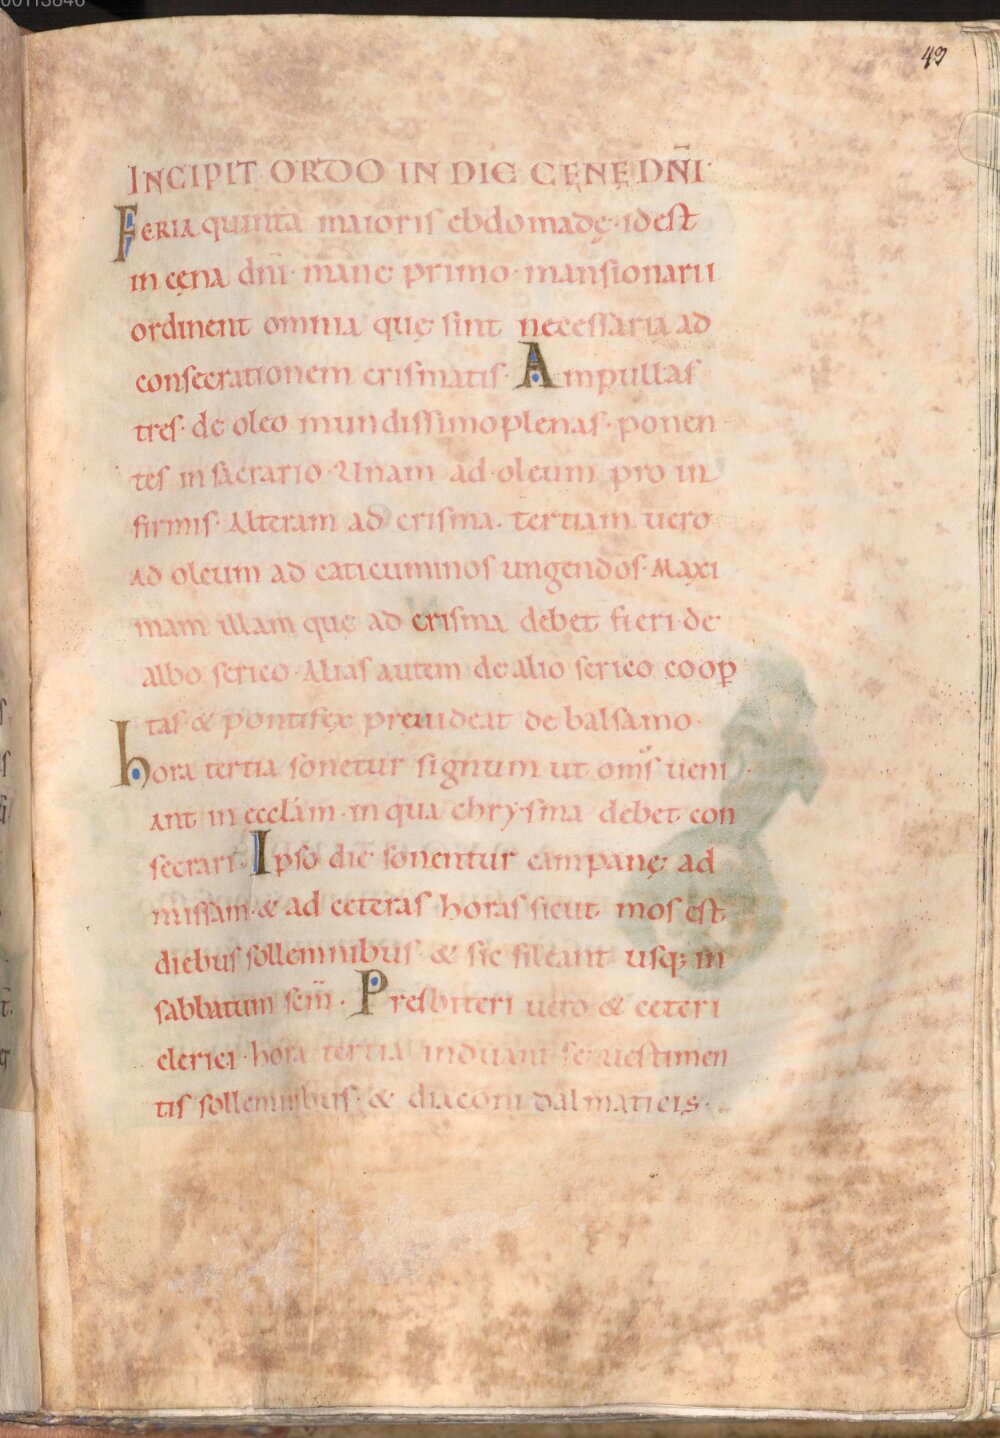 00113846
43
INCIPIT ORDO IN DIE CĘNĘ DN̄I·
FERIA quinta maioris ebdomadę· id est
in cęna dn̄i· mane primo· mansionarii
ordinent omnia quę sint necessaria ad
consecrationem crismatis· Ampullas
tres· de oleo mundissimo plenas· ponen
tes in sacrario· Unam ad oleum pro in
firmis· Alteram ad crisma· tertiam uero
ad oleum ad caticuminos ungendos· Maxi
mam illam quę ad crisma debet fieri de
albo serico· Alias autem de alio serico coop̄
tas & pontifex preuideat de balsamo·
hora tertia sonetur signum ut om̄s ueni
ant in eccl̄am· in qua chrysma debet con
secrari· Ipso die sonentur campanę ad
missam· & ad ceteras horas sicut mos est
diebus sollemnibus· & sic sileant usq; in
sabbatum scm̄· Presbiteri uero & ceteri
clerici· hora tertia induant se uestimen
tis sollemnibus· & diaconi dalmaticis·